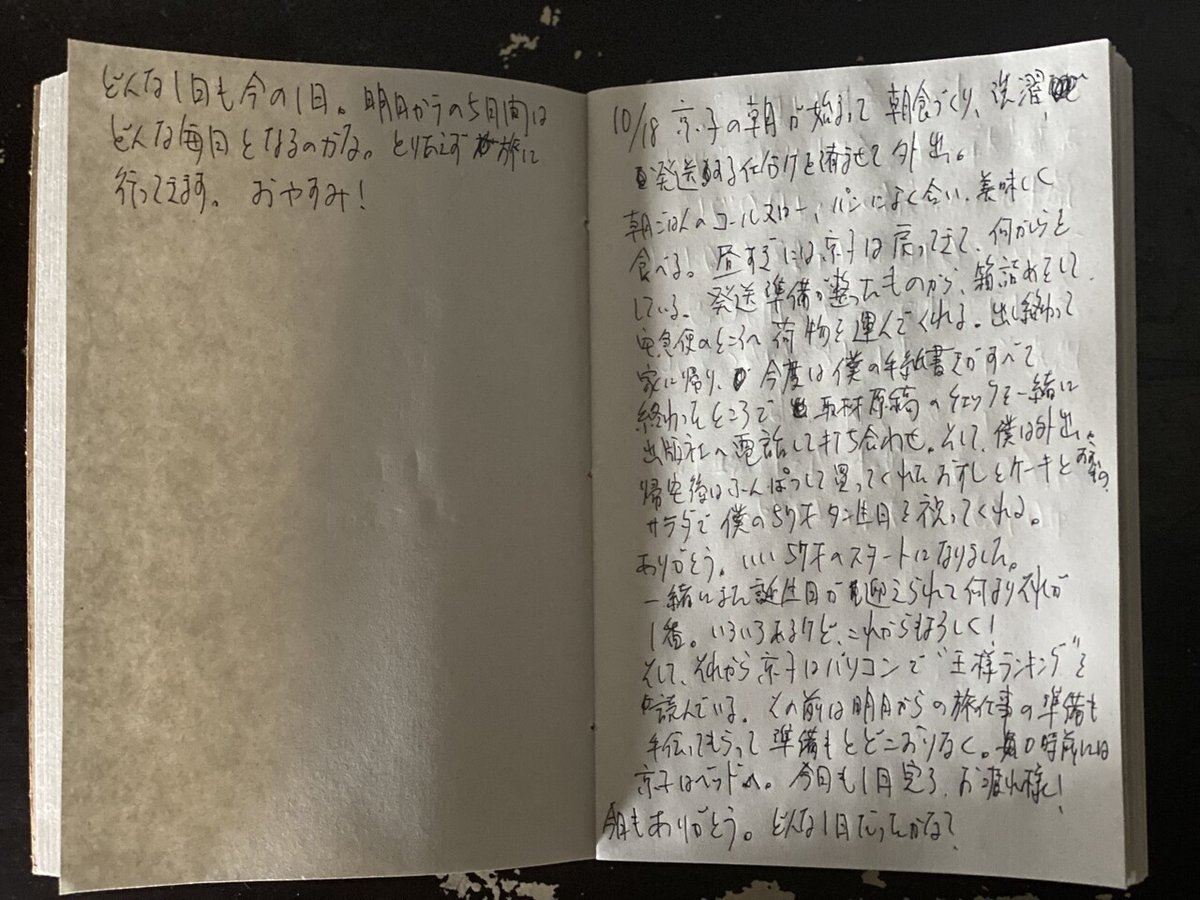 10/18 京子の朝が始まって朝食づくり、洗濯、
発送する仕分けを済ませて外出。
朝ごはんのコールスロー、パンによく合い、美味しく
食べる！昼すぎには京子は戻ってきて、何かしらを
している。発送準備が整ったものから、箱詰めをして、
宅急便のところへ荷物を運んでくれる。出し終わって
家に帰り、今度は僕の手紙書きがすべて
終わったところで取材原稿のチェックを一緒に
出版社へ電話して打ち合わせ。そして、僕は外出。
帰宅後はふんぱつして買ってくれたおすしとケーキと
サラダで僕の57才タン生日を祝ってくれる。
ありがとう。いい57才のスタートになりました。
一緒にまた誕生日が迎えられて何よりそれが
1番。いろいろあるけど、これからもよろしく！
そして、それから京子はパソコンで"王様ランキング"を
読んでいる。その前は明日からの旅仕事の準備も
手伝ってもらって準備もとどこおりなく。0時前には
京子はベッドへ。今日も1日完了、お疲れ様！
今日もありがとう。どんな1日だったかな？
どんな1日も今の1日。明日からの5日間は
どんな毎日となるのかな。とりあえず旅に
行ってきます。おやすみ！